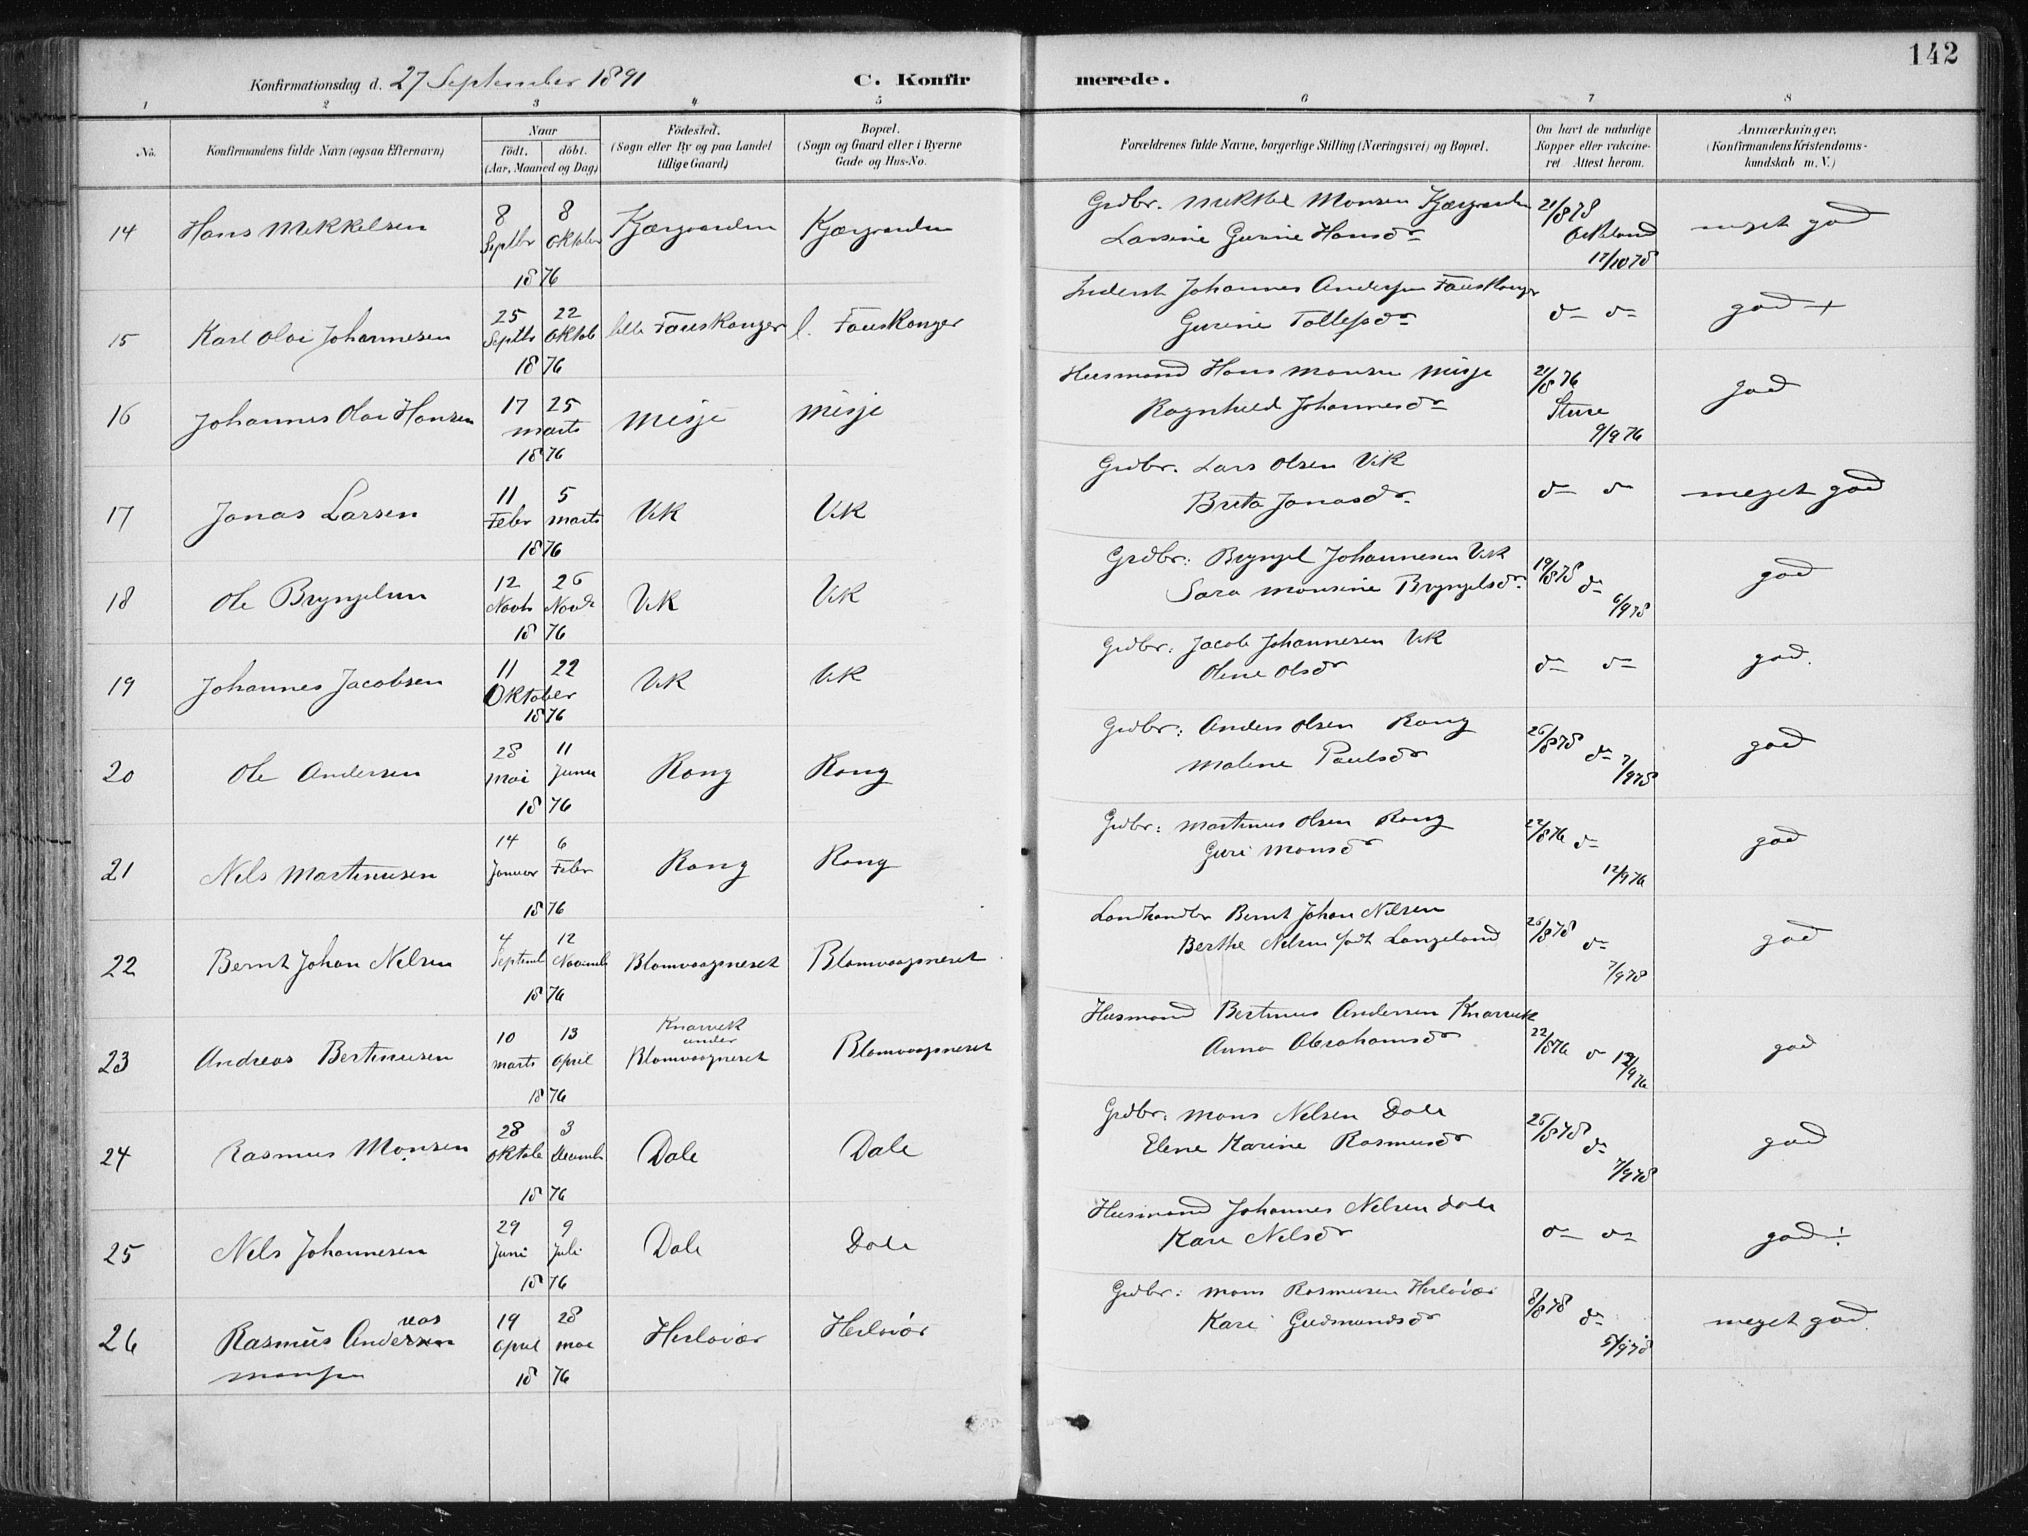 142
Konfirmationsdag d. 27 September 1891 C. Konfirmerede.
1 2 3 4 5 6 7 8
No. Konfirmandens fulde Navn (ogsaa Efternavn) Naar födt. döbt. (Aar, Maaned og Dag) Födested. (Sogn eller By og paa Landet tillige Gaard) Bopæl. (Sogn og Gaard eller i Byerne Gade og Hus-No. Forældrenes fulde Navne, borgerlige Stilling (Næringsvei) og Bopæl. Om havt de naturlige Kopper eller vakcineret Attest herom. Anmærkninger. (Konfirmandens Kristendomskundskab m. V.)
14 Hans Mikkelsen 8 Septbr 8 Oktober 1876 Kjærgaarden Kjærgaarden Grdbr. Mikkel Monsen Kjærgaarden 21/8 78 meget god
Larsine Gurine Hansdr 17/10 78
15 Karl Olai Johannesen 25 Septbr 22 Oktob 1876 lille Fauskanger l. Fauskanger Inderst Johannes Andersen Fauskanger d- d- god +
Gurine Tollefsdr
16 Johannes Olai Hansen 17 25 marts 1876 Misje Misje Husmand Hans Monsen Misje 21/8 76 Sture 9/9 76 god
Ragnhild Johannesdr
17 Jonas Larsen 11 Febr 5 marts 1876 Vik Vik Grdbr. Lars Olsen Vik d- d- meget god
Brita Jonasdr
18 Ole Bryngelsen 12 Novbr 26 Novbr 1876 Vik Vik Grdbr: Bryngel Johannesen Vik 19/8 78 d- 6/9 78 god
Sara Monsine Bryngelsdr
19 Johannes Jacobsen 11 22 Oktober 1876 Vik Vik Grdbr: Jacob Johannesen Vik d- d- god.
Oline Olsdr
20 Ole Andersen 28 Mai 11 Juni 1876 Rong Rong Grdbr: Anders Olsen Rong 26/8 78 d- 7/9 78 god
Malene Paulsdr
21 Nils Martinusen 14 Januar 6 Febr 1876 Rong Rong Grdbr: Martinus Olsen Rong 22/8 76 d- 12/9 76 god
Guri Monsdr
22 Bernt Johan Nilsen 4 Septemb 12 Novemb 1876 Blomvaagneset Blomvaagneset Landhandler Bernt Johan Nilsen 26/8 78 d- 7/9 78 god
Berthe Nilsen født Langeland
23 Andreas Bertinusen 10 marts 13 April 1876 Knarvik under Blomvaagneset Blomvaagneset Husmand Bertinus Andersen Knarvik 22/8 76 d- 12/9 76 god
Anna Abrahamsdr
24 Rasmus Monsen 28 Oktob 3 Decemb 1876 Dale Dale Grdbr. Mons Nilsen Dale 26/8 78 d- 7/9 78 god
Elene Karine Rasmusdr
25 Nils Johannesen 29 Juni 9 Juli 1876 Dale Dale Husmand Johannes Nilsen Dale d- d- god ÷
Kari Nilsdr
26 Rasmus Andersen eas Monsen 19 April 28 mai 1876 Herløvær Herløvær Grdbr: Mons Rasmusen Herløvær 8/8 78 d- 5/9 78 meget god
Kari Gudmundsdr